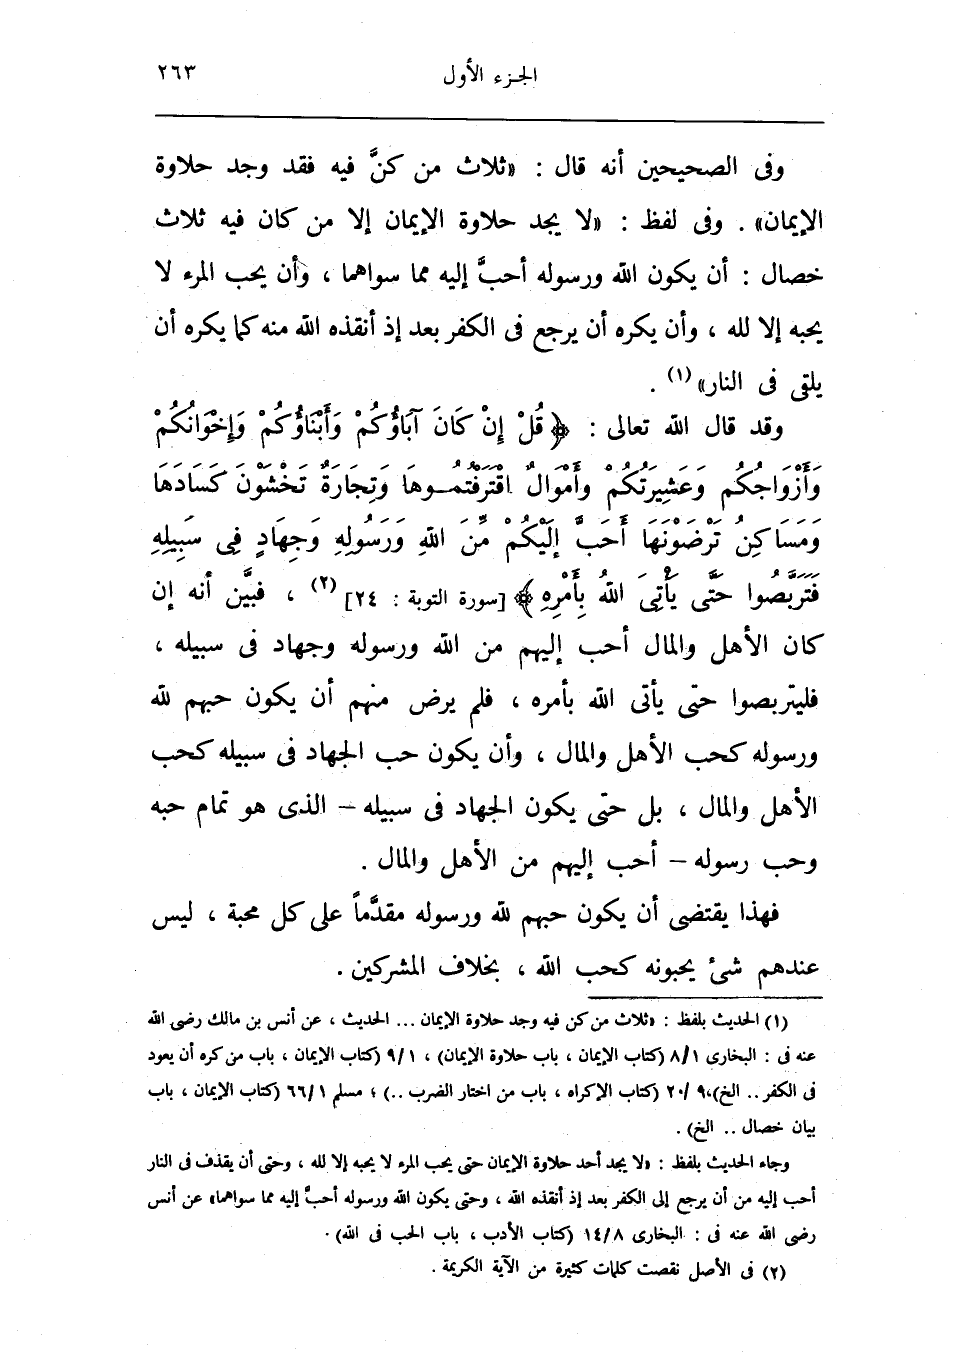 الجزء الأول ٢٦٣
وفى الصحيحين أنه قال : «ثلاث من كنَّ فيه فقد وجد حلاوة
الإيمان» . وفى لفظ : «لا يجد حلاوة الإيمان إلا من كان فيه ثلاث
خصال : أن يكون الله ورسوله أحبَّ إليه مما سواهما ، وأن يحب المرء لا
يحبه إلا لله ، وأن يكره أن يرجع فى الكفر بعد إذ أنقذه الله منه كما يكره أن
يلقى فى النار» (١) .
وقد قال الله تعالى : ﴿ قُلْ إِنْ كَانَ آبَاؤُكُمْ وَأَبْنَاؤُكُمْ وَإِخْوَانُكُمْ
وَأَزْوَاجُكُم وَعَشِيرَتُكُمْ وأَمْوَالٌ اقْتَرَفْتُمُوهَا وَتِجَارَةٌ تَخْشَوْنَ كَسَادَهَا
وَمَسَاكِنُ تَرْضَوْنَهَا أَحَبَّ إِلَيْكُمْ مِّنَ اللهِ وَرَسُولِهِ وَجِهَادٍ فِى سَبِيلِهِ
فَتَرَبَّصُوا حَتَّى يَأْتِىَ اللهُ بِأَمْرِهِ ﴾ [سورة التوبة : ٢٤] (٢) ، فبيَّن أنه إن
كان الأهل والمال أحب إليهم من الله ورسوله وجهاد فى سبيله ،
فليتربصوا حتى يأتى الله بأمره ، فلم يرض منهم أن يكون حبهم لله
ورسوله كحب الأهل والمال ، وأن يكون حب الجهاد فى سبيله كحب
الأهل والمال ، بل حتى يكون الجهاد فى سبيله – الذى هو تمام حبه
وحب رسوله – أحب إليهم من الأهل والمال .
فهذا يقتضى أن يكون حبهم لله ورسوله مقدَّماً على كل محبة ، ليس
عندهم شئ يحبونه كحب الله ، بخلاف المشركين .
(١) الحديث بلفظ : «ثلاث من كن فيه وجد حلاوة الإيمان ... الحديث ، عن أنس بن مالك رضى الله
عنه فى : البخارى ٨/١ (كتاب الإيمان ، باب حلاوة الإيمان) ، ٩/١ (كتاب الإيمان ، باب من كره أن يعود
فى الكفر .. الخ)، ٢٠/٩ (كتاب الإكراه ، باب من اختار الضرب ..) ؛ مسلم ٦٦/١ (كتاب الإيمان ، باب
بيان خصال .. الخ) .
وجاء الحديث بلفظ : «لا يجد أحد حلاوة الإيمان حتى يحب المرء لا يحبه إلا لله ، وحتى أن يقذف فى النار
أحب إليه من أن يرجع إلى الكفر بعد إذ أنقذه الله ، وحتى يكون الله ورسوله أحبَّ إليه مما سواهما» عن أنس
رضى الله عنه فى : البخارى ١٤/٨ (كتاب الأدب ، باب الحب فى الله) .
(٢) فى الأصل نقصت كلمات كثيرة من الآية الكريمة .